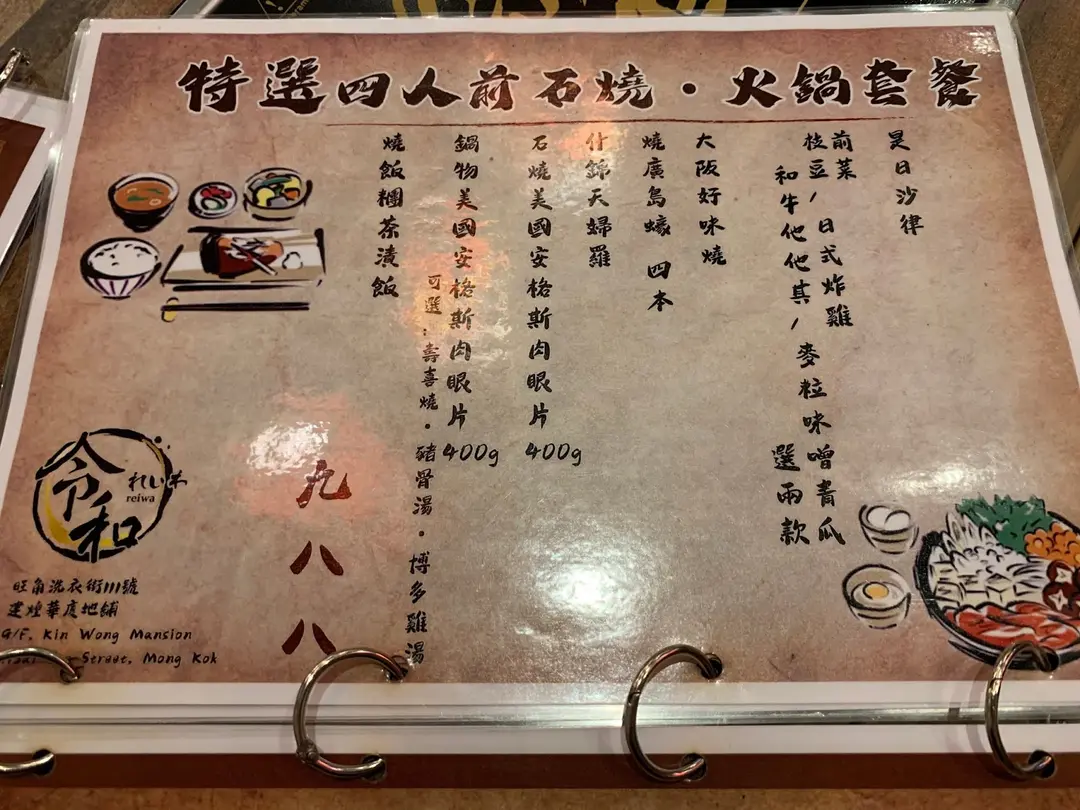 特選四人前石燒・火鍋套餐
是日沙律
前菜
枝豆/日式炸雞
和牛他他其/麥粒味噌青瓜
選兩款
大阪好味燒
燒廣島蠔 四本
什錦天婦羅
石燒美國安格斯肉眼片 400g
鍋物美國安格斯肉眼片 400g
可選:壽喜燒。豬骨湯。博多雞湯
燒飯糰茶漬飯
九八八
令和
れいわ
reiwa
旺角洗衣街111號
建煌華廈地舖
G/F, Kin Wong Mansion
Street, Mong Kok